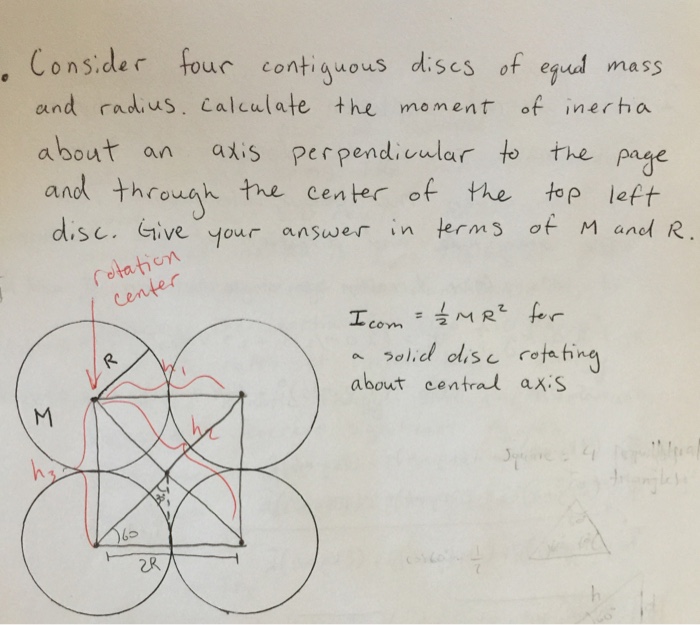 . Consider four contiguous discs of equal mass
and radius. Calculate the moment of inertia
about an axis perpendicular to the page
and through the center of the top left
disc. Give your answer in terms of M and R.
rotation
center
I com = 1/2 M R² for
a solid disc rotating
about central axis
R
h1
M
h2
h3
60
2R